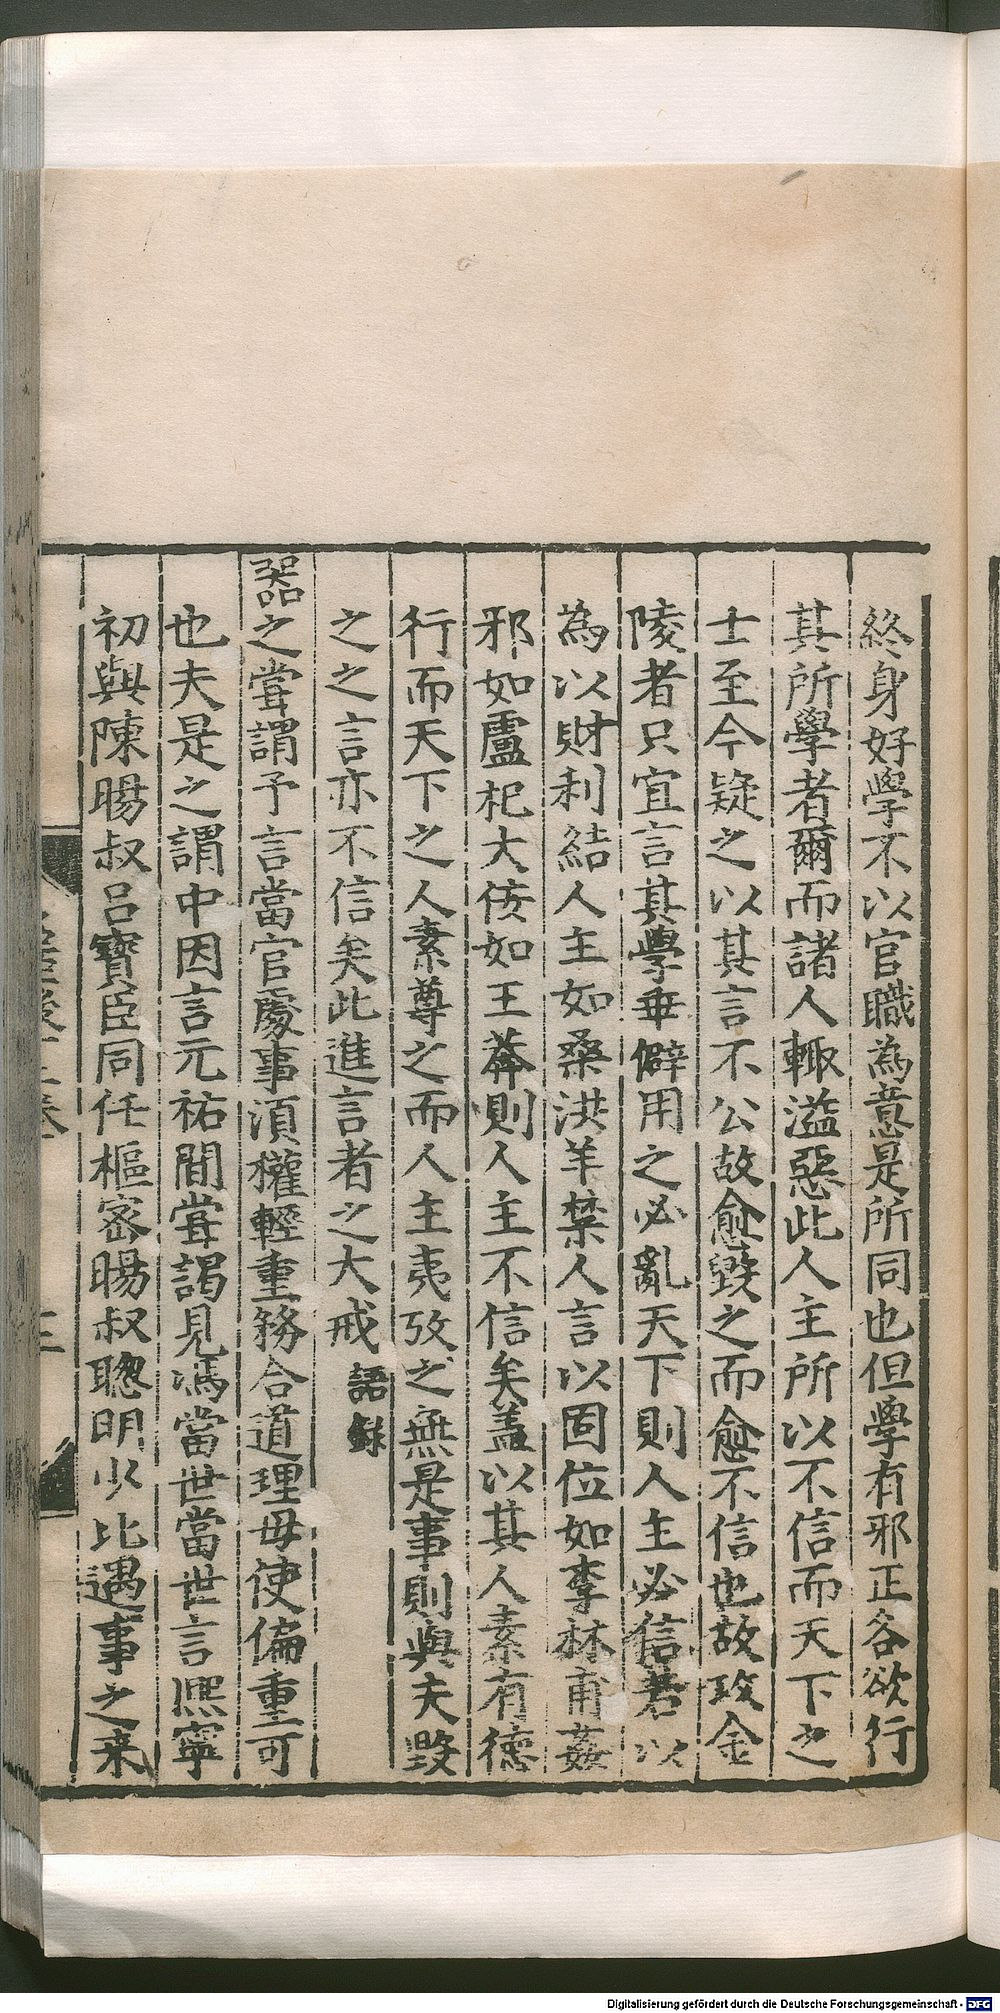 終身好學不以官職為意是所同也但學有邪正各欲行
其所學者爾而諸人輙溢惡此人主所以不信而天下之
士至今疑之以其言不公故愈毀之而愈不信也故攻金
陵者只宜言其學乖僻用之必亂天下則人主必信若以
為以財利結人主如桑洪羊禁人言以固位如李林甫姦
邪如盧杞大佞如王莽則人主不信矣蓋以其人素有德
行而天下之人素尊之而人主夷攷之無是事則與夫毀
之之言亦不信矣此進言者之大戒 語錄
器之甞謂予言當官處事須權輕重務合道理毋使偏重可
也夫是之謂中因言元祐間甞謁見馮當世當世言熈寧
初與陳暘叔呂寶臣同任樞密暘叔聰明少比遇事之来
Digitalisierung gefördert durch die Deutsche Forschungsgemeinschaft - DFG